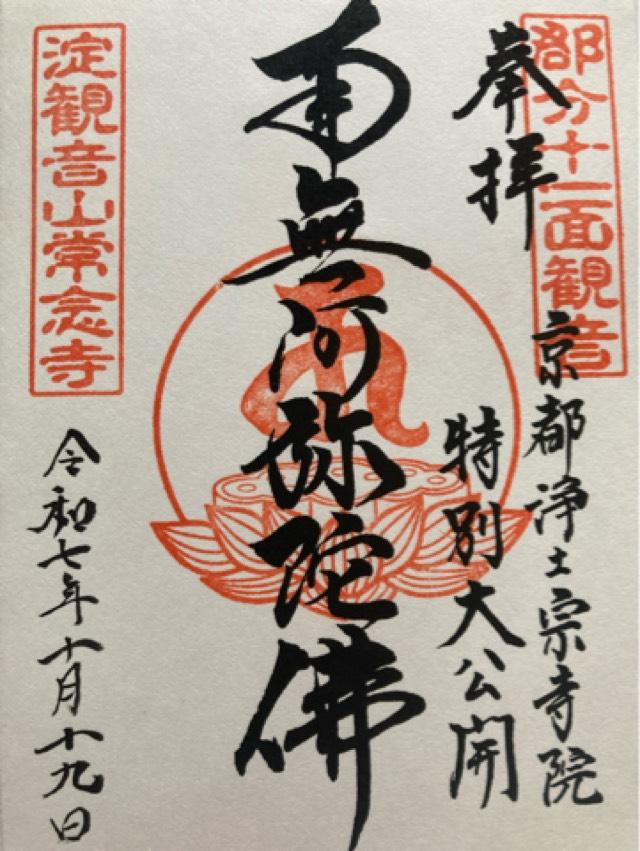 都分十一面観音
奉拝
京都浄土宗寺院
特別大公開
南無阿弥陀佛
淀観音山常念寺
令和七年十月十九日